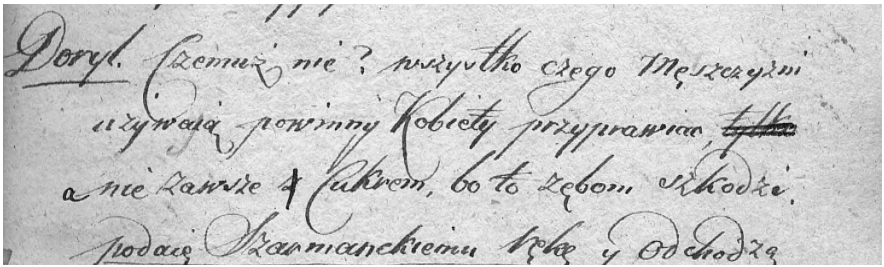 Doryl. Czemuż nie? wszystko czego Męszczyzni
używają powinny Kobiety przyprawiac, tylko
a nie zawsze z Cukrem, bo to zębom szkodzi.
podaię Szarmanckiemu rękę y Odchodzą